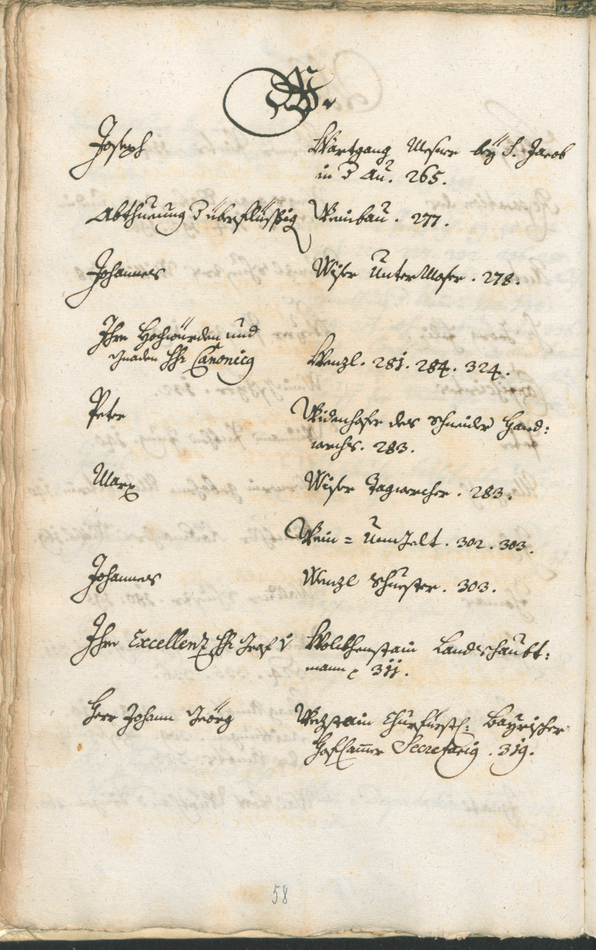 W.
Joseph Wartgang Mesner bey S. Jacob
in d Au. 265.
Abthueung d überflüssig Weinbau. 277.
Johannes Wiser UnterMoser. 278.
Ihro Hochwürden und
Gnaden HH. Canonicg Wenzl. 281. 284. 324.
Peter Widenhofer des Schneider Hand:
werchs. 283.
Marx Wiser Tagwercher. 283.
Wein = Umgelt. 302. 303.
Johannes Wenzl Schuester. 303.
Ihro Excellenz HH. Graf v Wolckhenstain Landtshaubt:
mann 311.
Herr Johann Georg Wechstain Churfürstl: Bayrischer
Hofcammer Secretarig. 319.
58